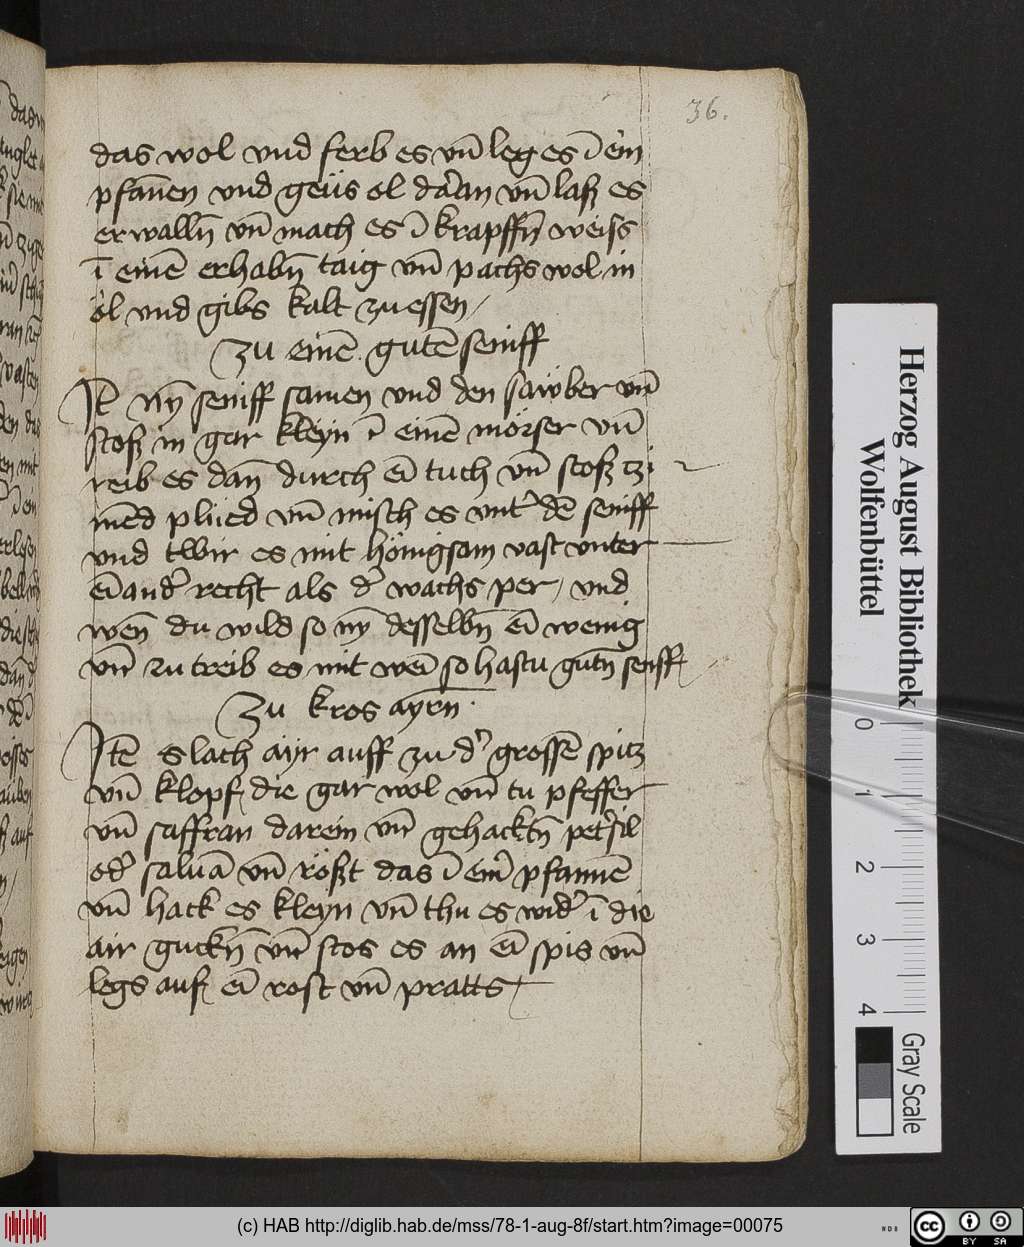 36.
das wol vnd ferb es vn̄ leg es ī ein̄
pfan̄en vnd geüs ol dar̓an vn̄ laß es
erwalln̄ vn̄ mach es ī krapffn̄ weiss
ī einē erhabn̄ taig vn̄ pachs wol in
öl vnd gibs kalt zu essen /
Zu einē gutē seniff
Itē nÿ seniff samen vnd den sawber vn̄
stoß in gar kleyn ī einē mörser vn̄
reib es dan̄ durch eī tuch vn̄ stoß tzi
mēd plüed vn̄ misch es vnt̓ dē seniff
vnd twir es mit hönigsam vast vnter
eīand̓ recht als d̓ wachs per / vnd
wen̄ du wild so nÿ desselbn̄ eī wenig
vn̄ zu treib es mit weī so hastu gutn̄ senff
Zu kros ayrn̄
Itē slach äyr auff zu d̓ grossē spitz
vn̄ klopf die gar wol vn̄ tu pfeffer
vn̄ saffran darein vn̄ gehacktn̄ pet̓sil
od̓ saluā vn̄ rößt das ī ein̓ pfannē
vn̄ hack es kleyn vn̄ thu es wid̓ ī die
air guckn̄ vn̄ stos es an eī spis vn̄
legs auf eī rost vn̄ pratts
Herzog August Bibliothek
Wolfenbüttel
0 1 2 3 4
Gray Scale
(c) HAB http://diglib.hab.de/mss/78-1-aug-8f/start.htm?image=00075
cc BY SA